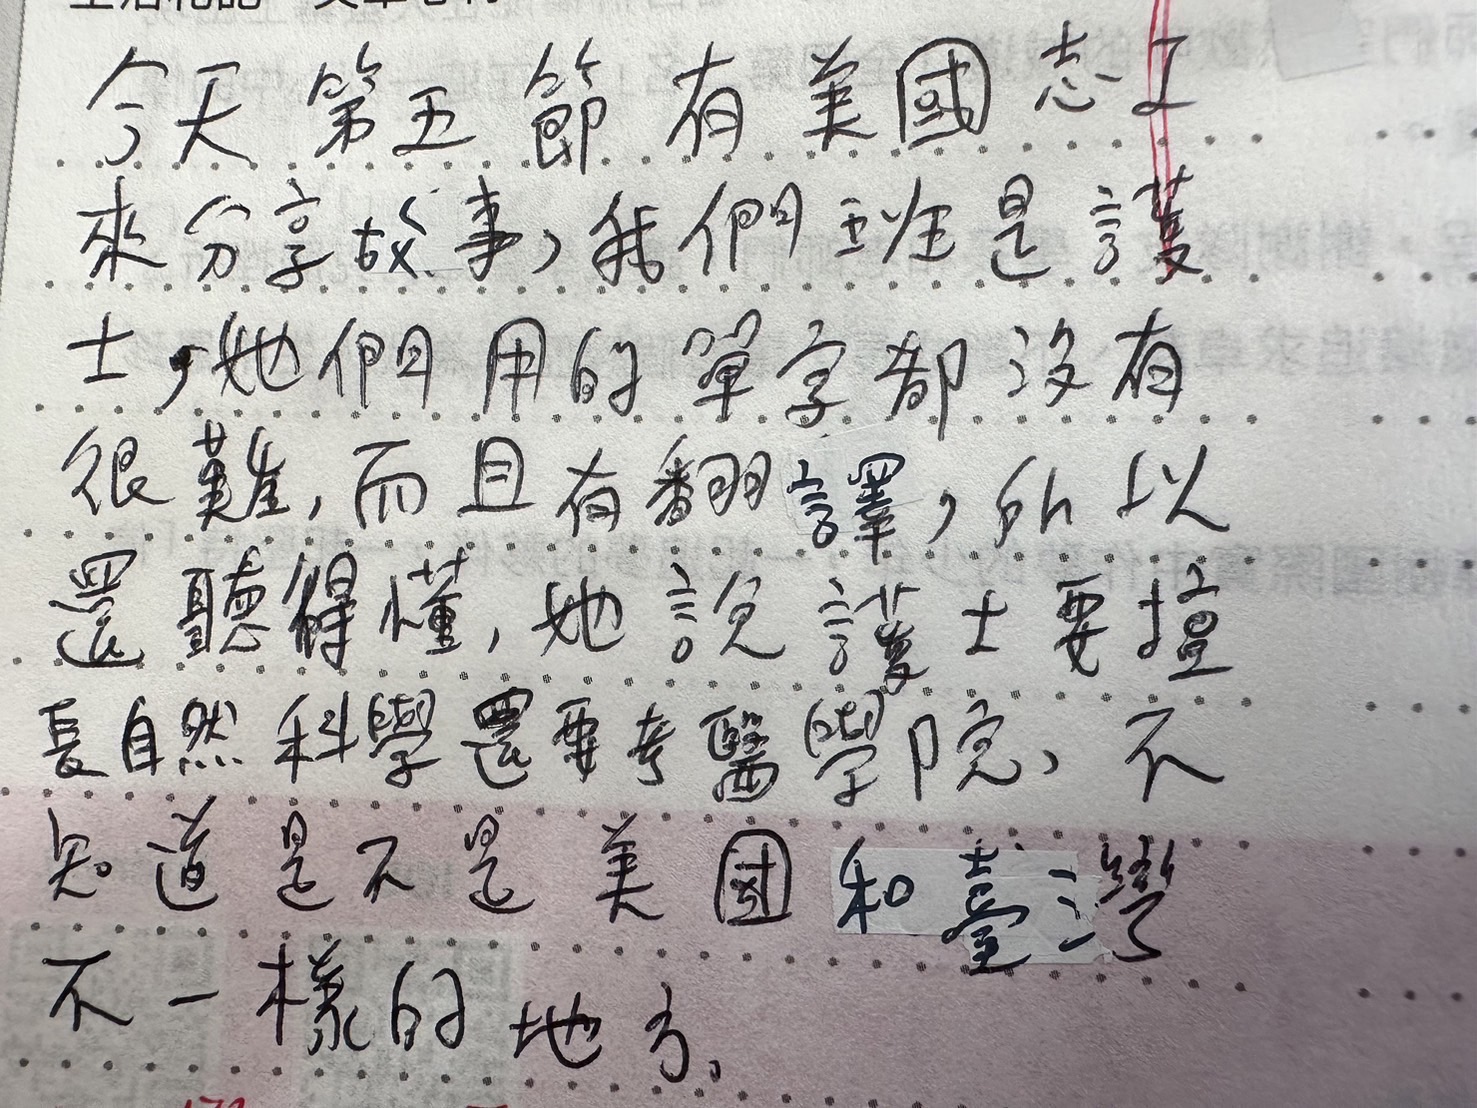 今天第五節有美國志工
來分享故事,我們班是護
士,她們用的單字都沒有
很難,而且有翻譯,所以
還聽得懂,她說護士要擅
長自然科學還要考醫學院、不
知道是不是美國和臺灣
不一樣的地方。